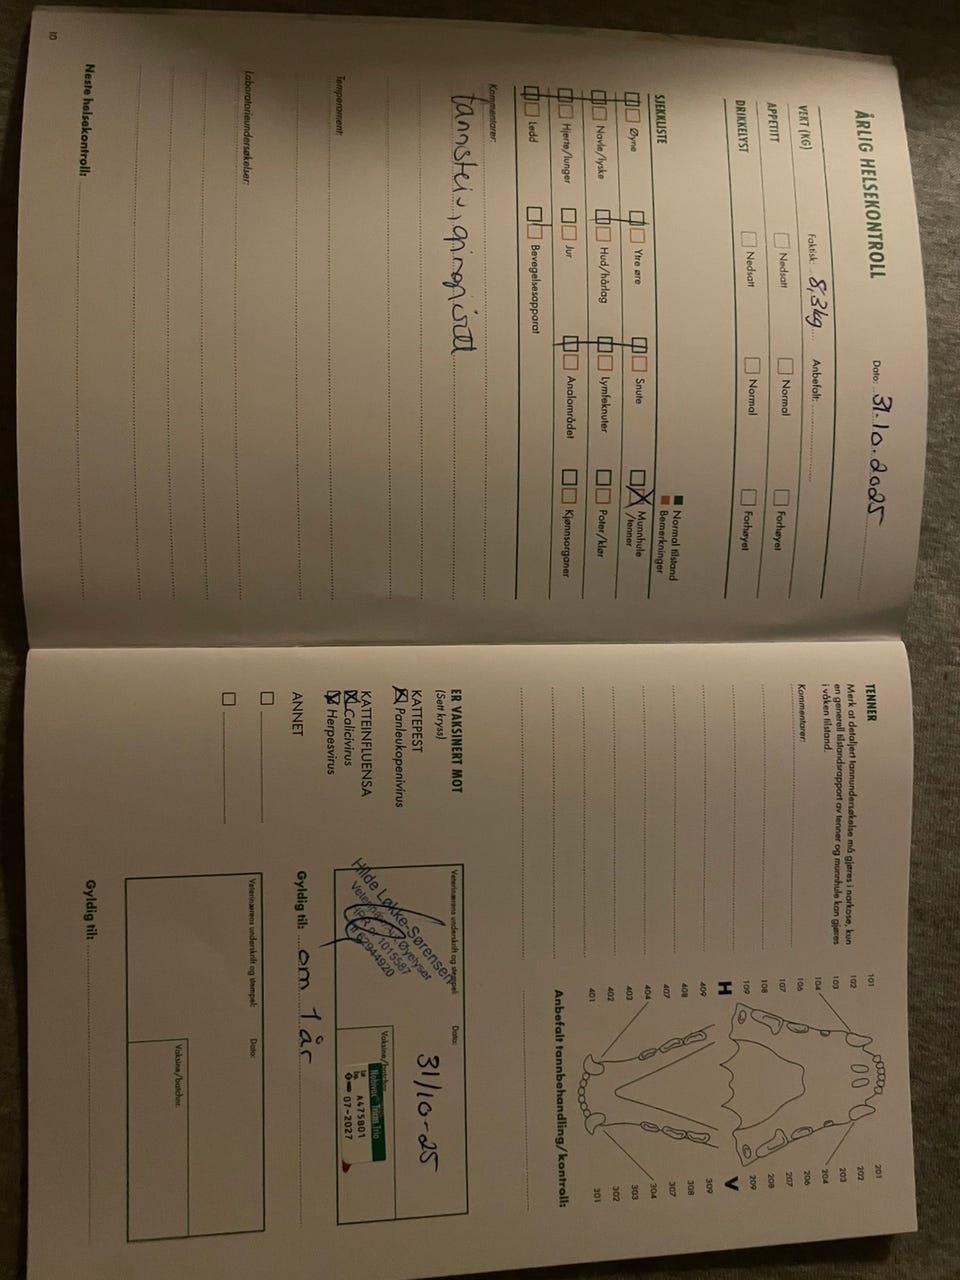 ÅRLIG HELSEKONTROLL
Dato: 31.10.2025
VEKT (KG) Faktisk: 8,3kg Anbefalt:
APPETITT Nedsatt Normal Forhøyet
DRIKKELYST Nedsatt Normal Forhøyet
Normal tilstand
SJEKKLISTE Bemerkninger
Øyne Ytre øre Snute Munnhule /tenner
Navle/lyske Hud/hårlag Lymfeknuter Poter/klør
Hjerte/lunger Jur Analområdet Kjønnsorganer
Ledd Bevegelsesapparat
Kommentarer:
tannstein, gingivitt
Temperament:
Laboratorieundersøkelser:
Neste helsekontroll:
10
TENNER
Merk at detaljert tannundersøkelse må gjøres i narkose, kun
en generell tilstandsrapport av tenner og munnhule kan gjøres
i våken tilstand.
Kommentarer:
101 201
102 202
103 203
104 204
106 206
107 207
108 208
109 209
H V
409 309
408 308
407 307
404 304
403 303
402 302
401 301
Anbefalt tannbehandling/kontroll:
ER VAKSINERT MOT
(Sett kryss)
KATTEPEST
Panleukopenivirus
KATTEINFLUENSA
Calicivirus
Herpesvirus
Veterinærens underskrift og stempel: Dato:
31/10-25
Hilde Løkke-Sørensen
1015587
62944920
Vaksine/batchnr.
Nobivac Tricat Trio
A475B01
07-2027
Gyldig til: om 1 år
ANNET
Veterinærens underskrift og stempel: Dato:
Vaksine/batchnr.
Gyldig til: